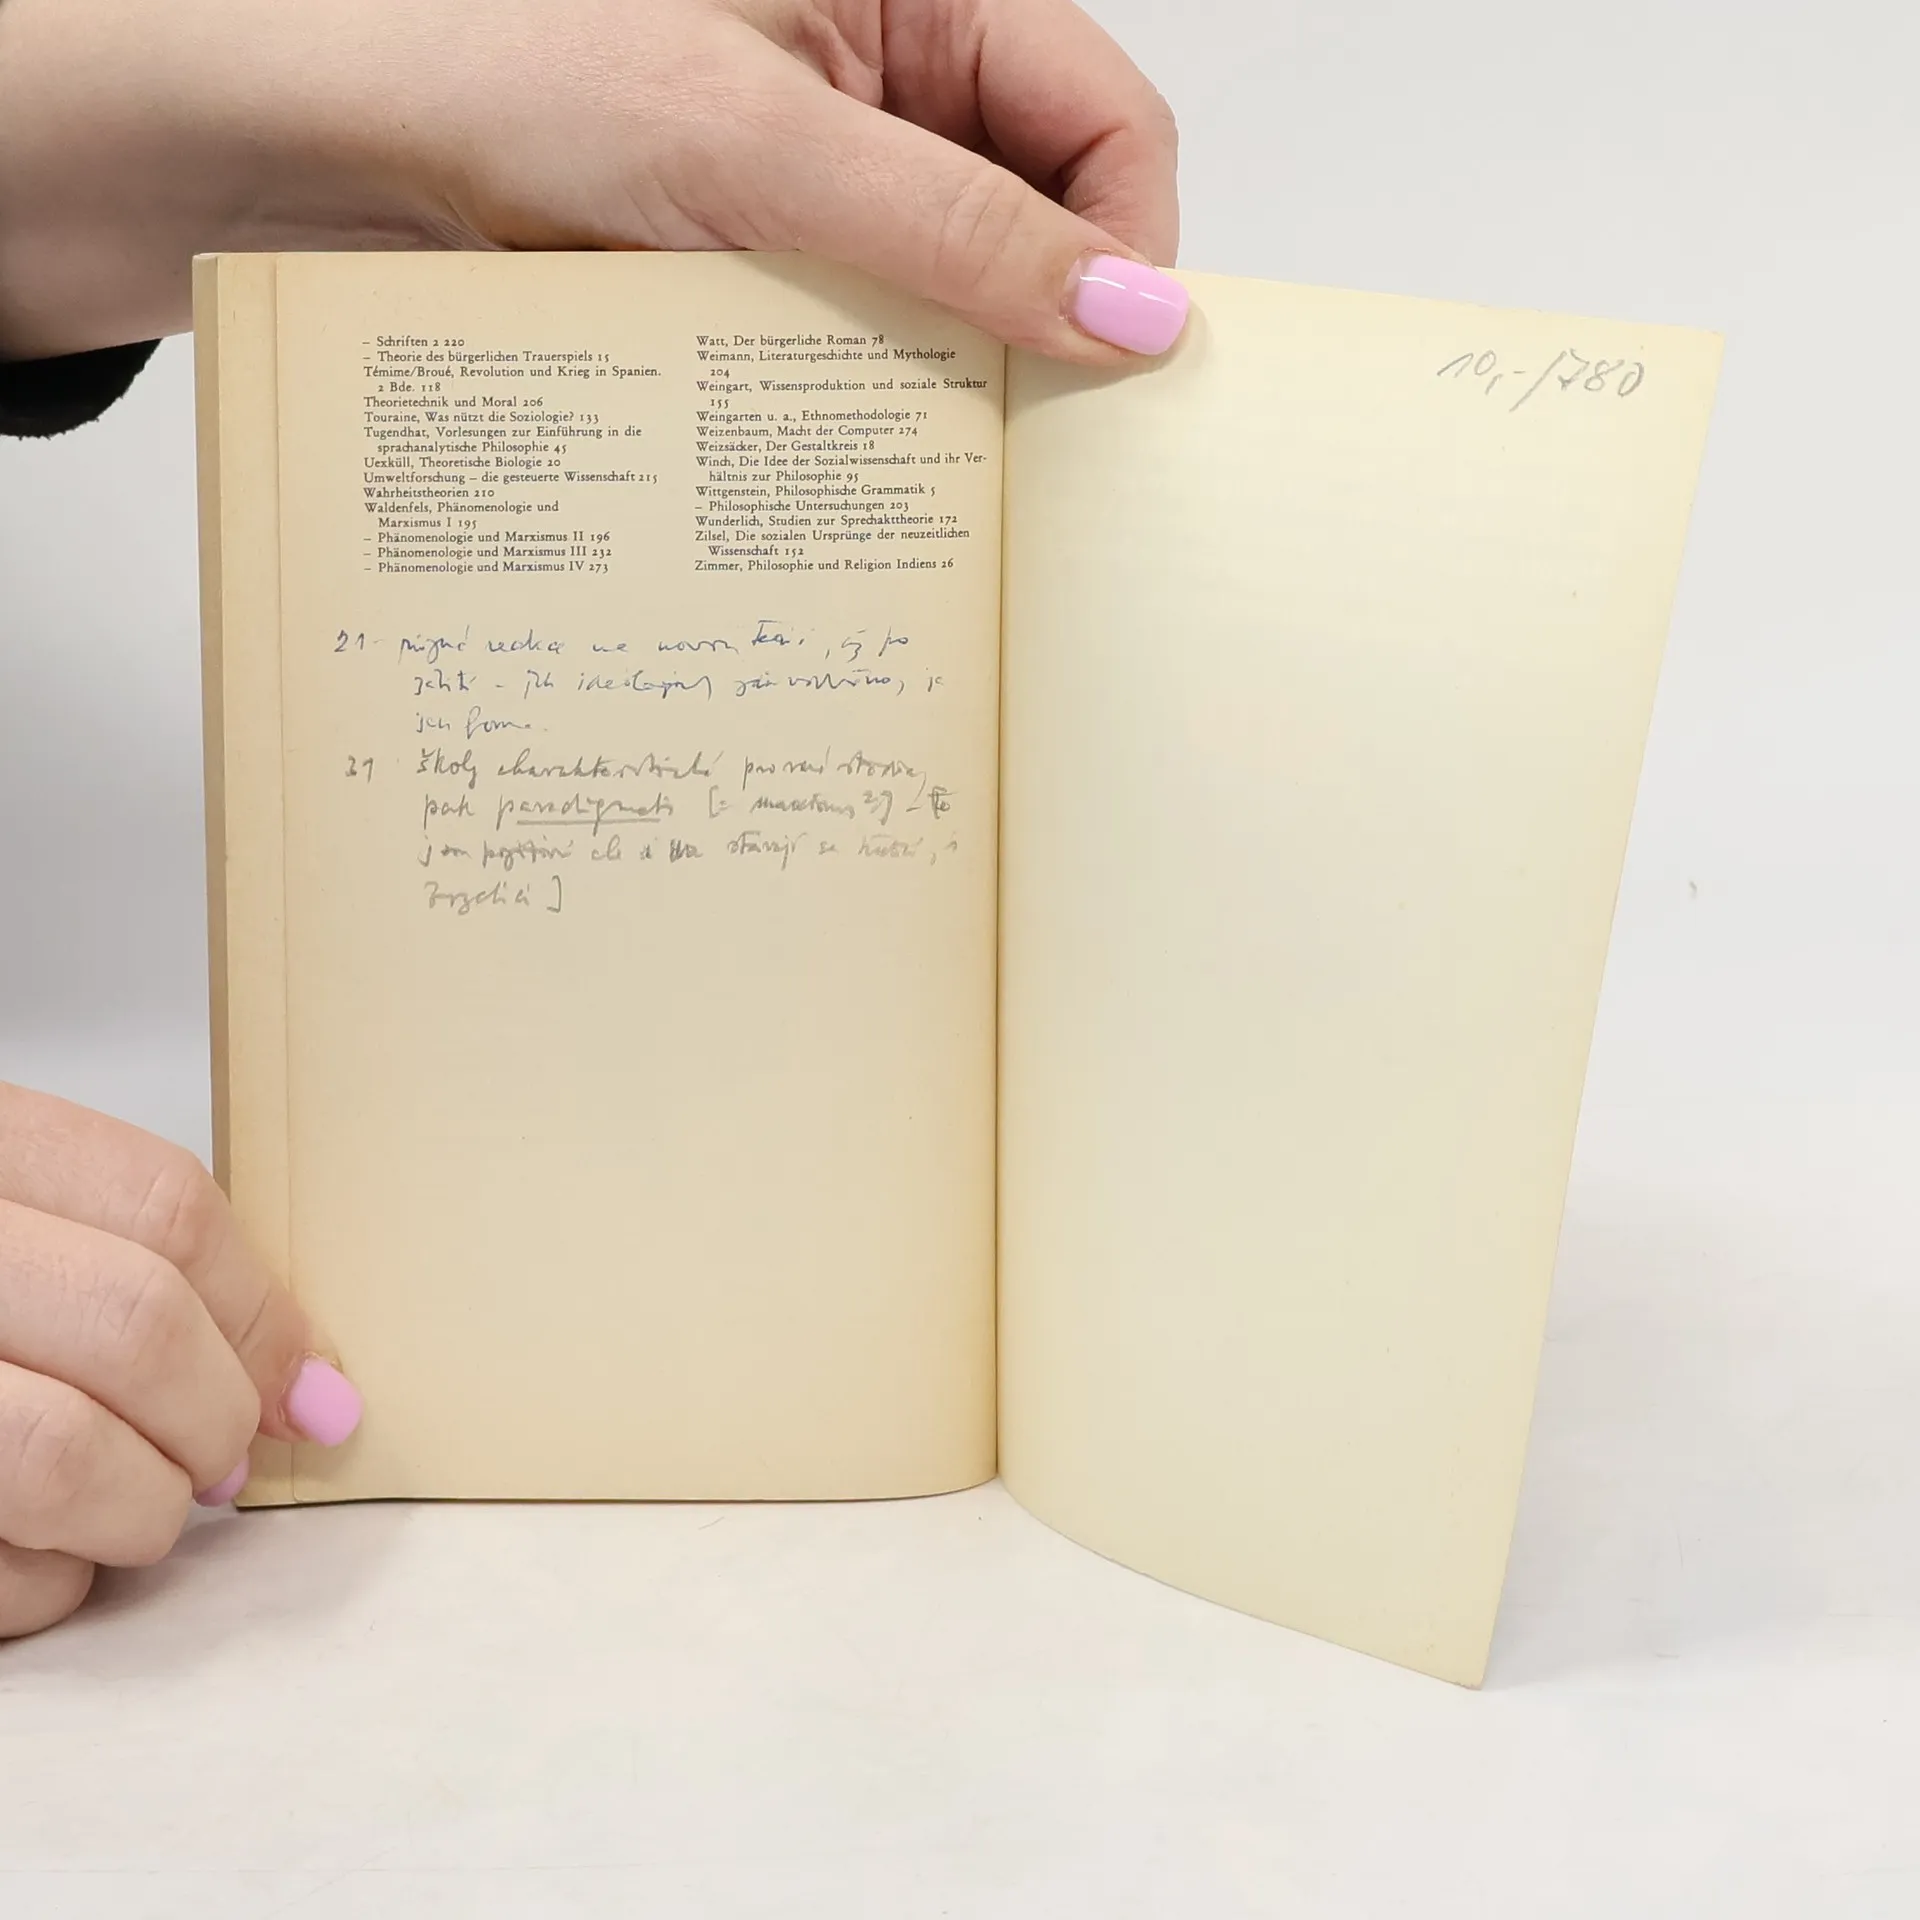 – Schriften 2 220
– Theorie des bürgerlichen Trauerspiels 15
Témime/Broué, Revolution und Krieg in Spanien.
2 Bde. 118
Theorietechnik und Moral 206
Touraine, Was nützt die Soziologie? 133
Tugendhat, Vorlesungen zur Einführung in die
sprachanalytische Philosophie 45
Uexküll, Theoretische Biologie 20
Umweltforschung – die gesteuerte Wissenschaft 215
Wahrheitstheorien 210
Waldenfels, Phänomenologie und
Marxismus I 195
– Phänomenologie und Marxismus II 196
– Phänomenologie und Marxismus III 232
– Phänomenologie und Marxismus IV 273
Watt, Der bürgerliche Roman 78
Weimann, Literaturgeschichte und Mythologie
204
Weingart, Wissensproduktion und soziale Struktur
155
Weingarten u. a., Ethnomethodologie 71
Weizenbaum, Macht der Computer 274
Weizsäcker, Der Gestaltkreis 18
Winch, Die Idee der Sozialwissenschaft und ihr Ver-
hältnis zur Philosophie 95
Wittgenstein, Philosophische Grammatik 5
– Philosophische Untersuchungen 203
Wunderlich, Studien zur Sprechakttheorie 172
Zilsel, Die sozialen Ursprünge der neuzeitlichen
Wissenschaft 152
Zimmer, Philosophie und Religion Indiens 26
21 -
31 školy charakteristické
pak
se
10,-/780